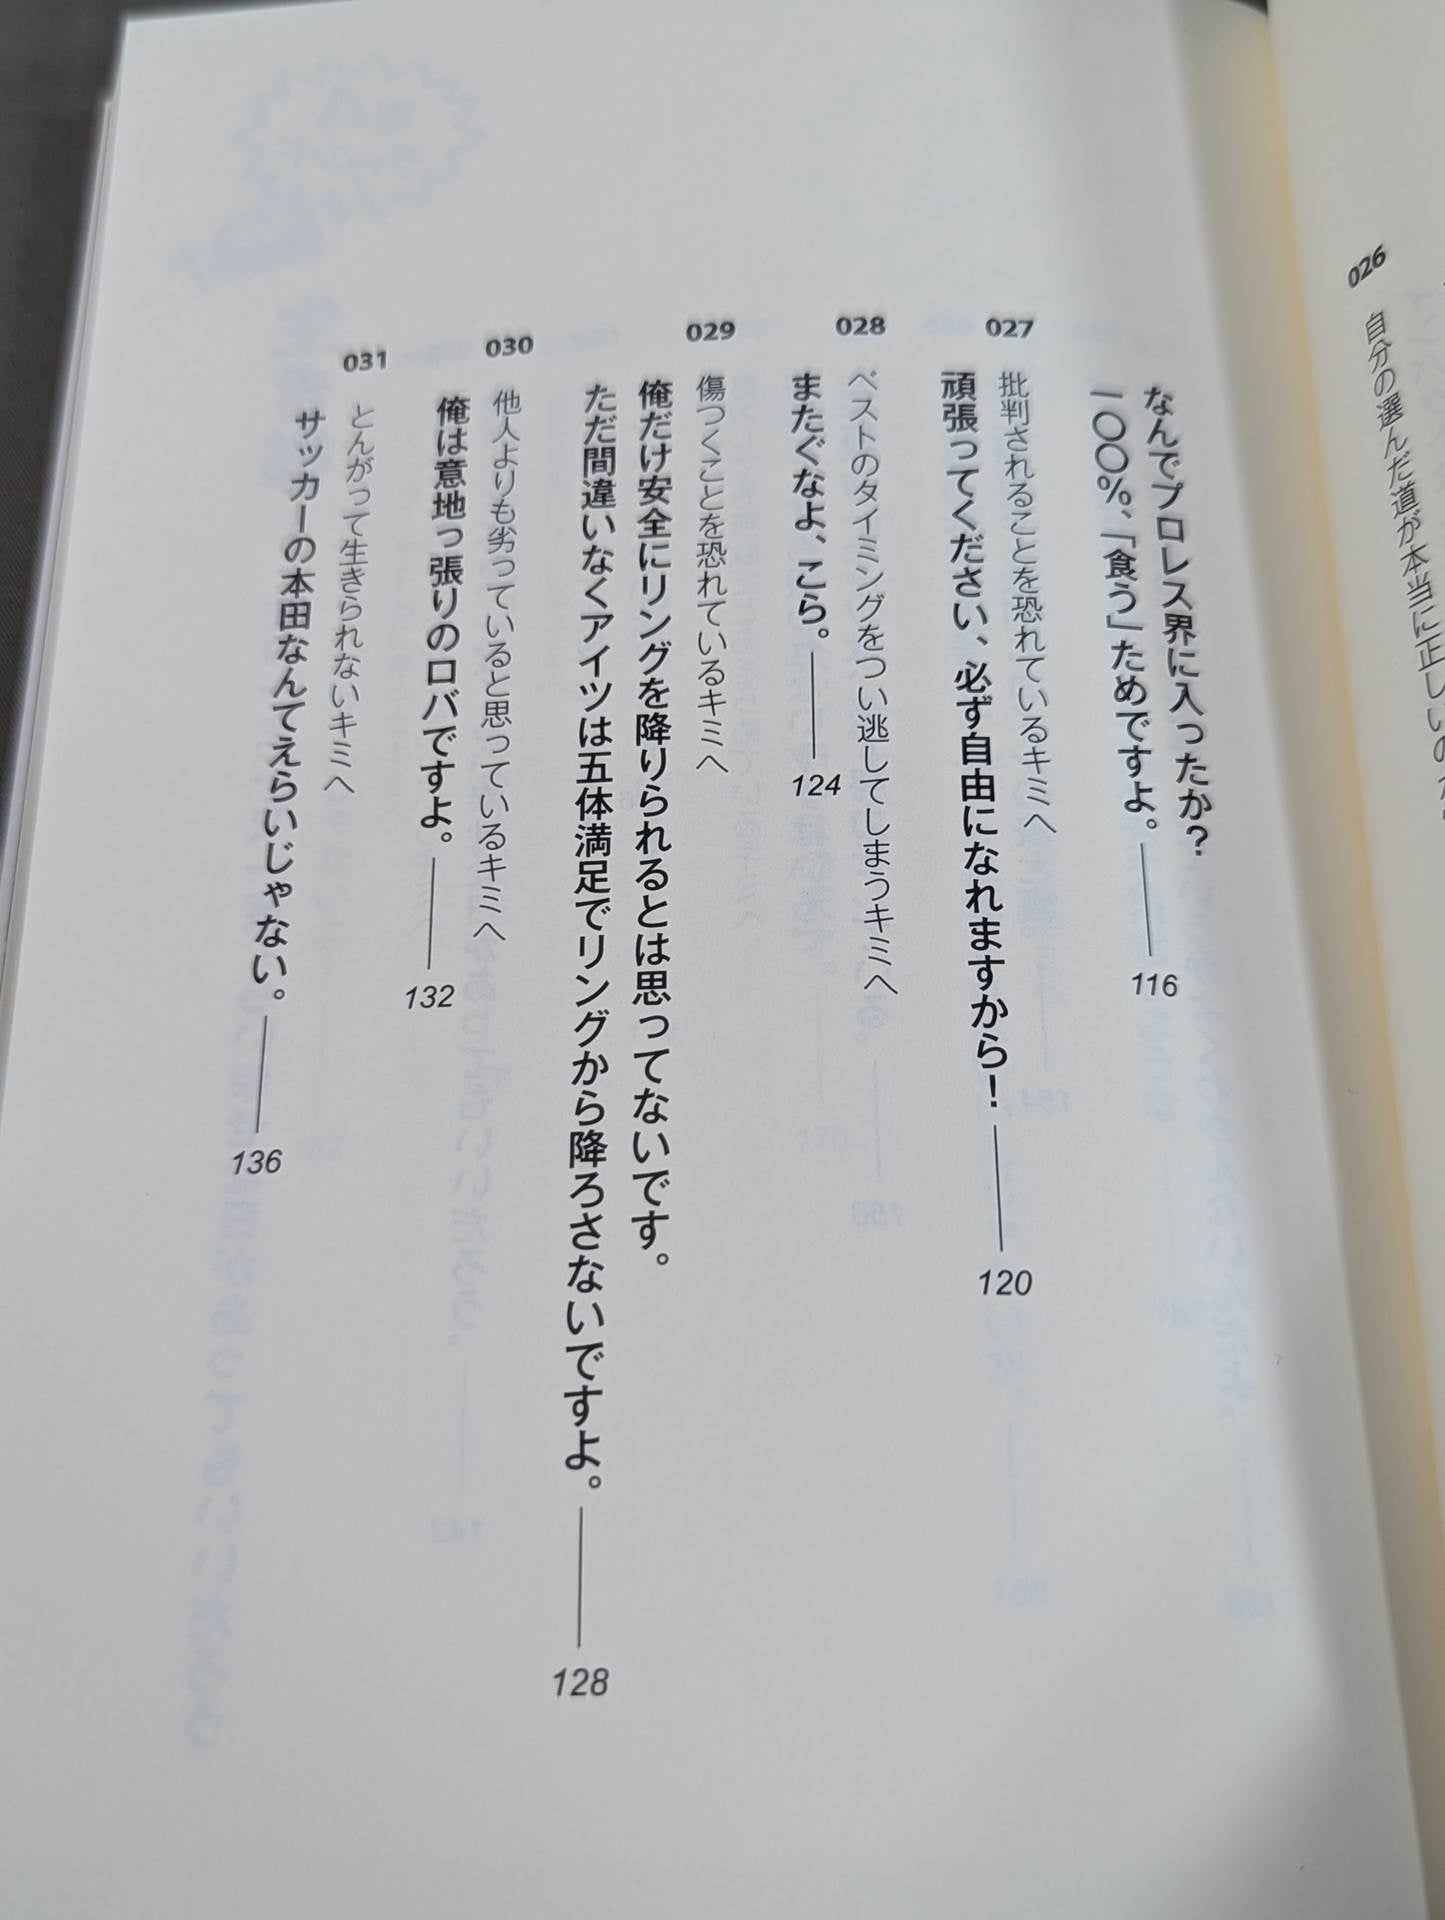 026
自分の選んだ道が本当に正しいの
なんでプロレス界に入ったか?
一〇〇%、「食う」ためですよ。——116
027
批判されることを恐れているキミへ
頑張ってください、必ず自由になれますから!——120
028
ベストのタイミングをつい逃してしまうキミへ
またぐなよ、こら。——124
029
傷つくことを恐れているキミへ
俺だけ安全にリングを降りられるとは思ってないです。
ただ間違いなくアイツは五体満足でリングから降ろさないですよ。——128
030
他人よりも劣っていると思っているキミへ
俺は意地っ張りのロバですよ。——132
031
とんがって生きられないキミへ
サッカーの本田なんてえらいじゃない。——136